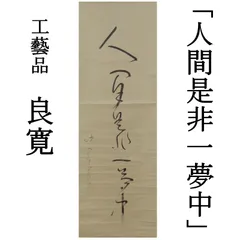 「人間是非一夢中」
人間是非一夢中
工藝品 良寛